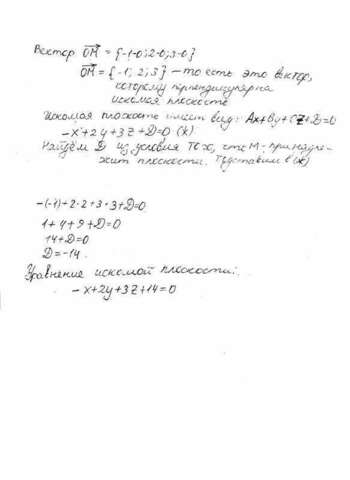 Вектор OM = {-1-0; 2-0; 3-0}
OM = {-1; 2; 3} – то есть это вектор,
которому перпендикулярна
искомая плоскость
Искомая плоскость имеет вид: Ax+By+Cz+D=0
-x+2y+3z+D=0 (*)
Найдём D из условия того, что M - принадле-
жит плоскости. Подставим в (*)
-(-1)+2·2+3·3+D=0
1+4+9+D=0
14+D=0
D=-14.
Уравнение искомой плоскости:
-x+2y+3z+14=0